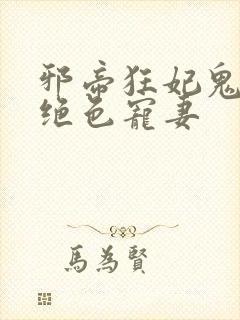 邪帝狂妃鬼
绝色寵妻
馬為賢